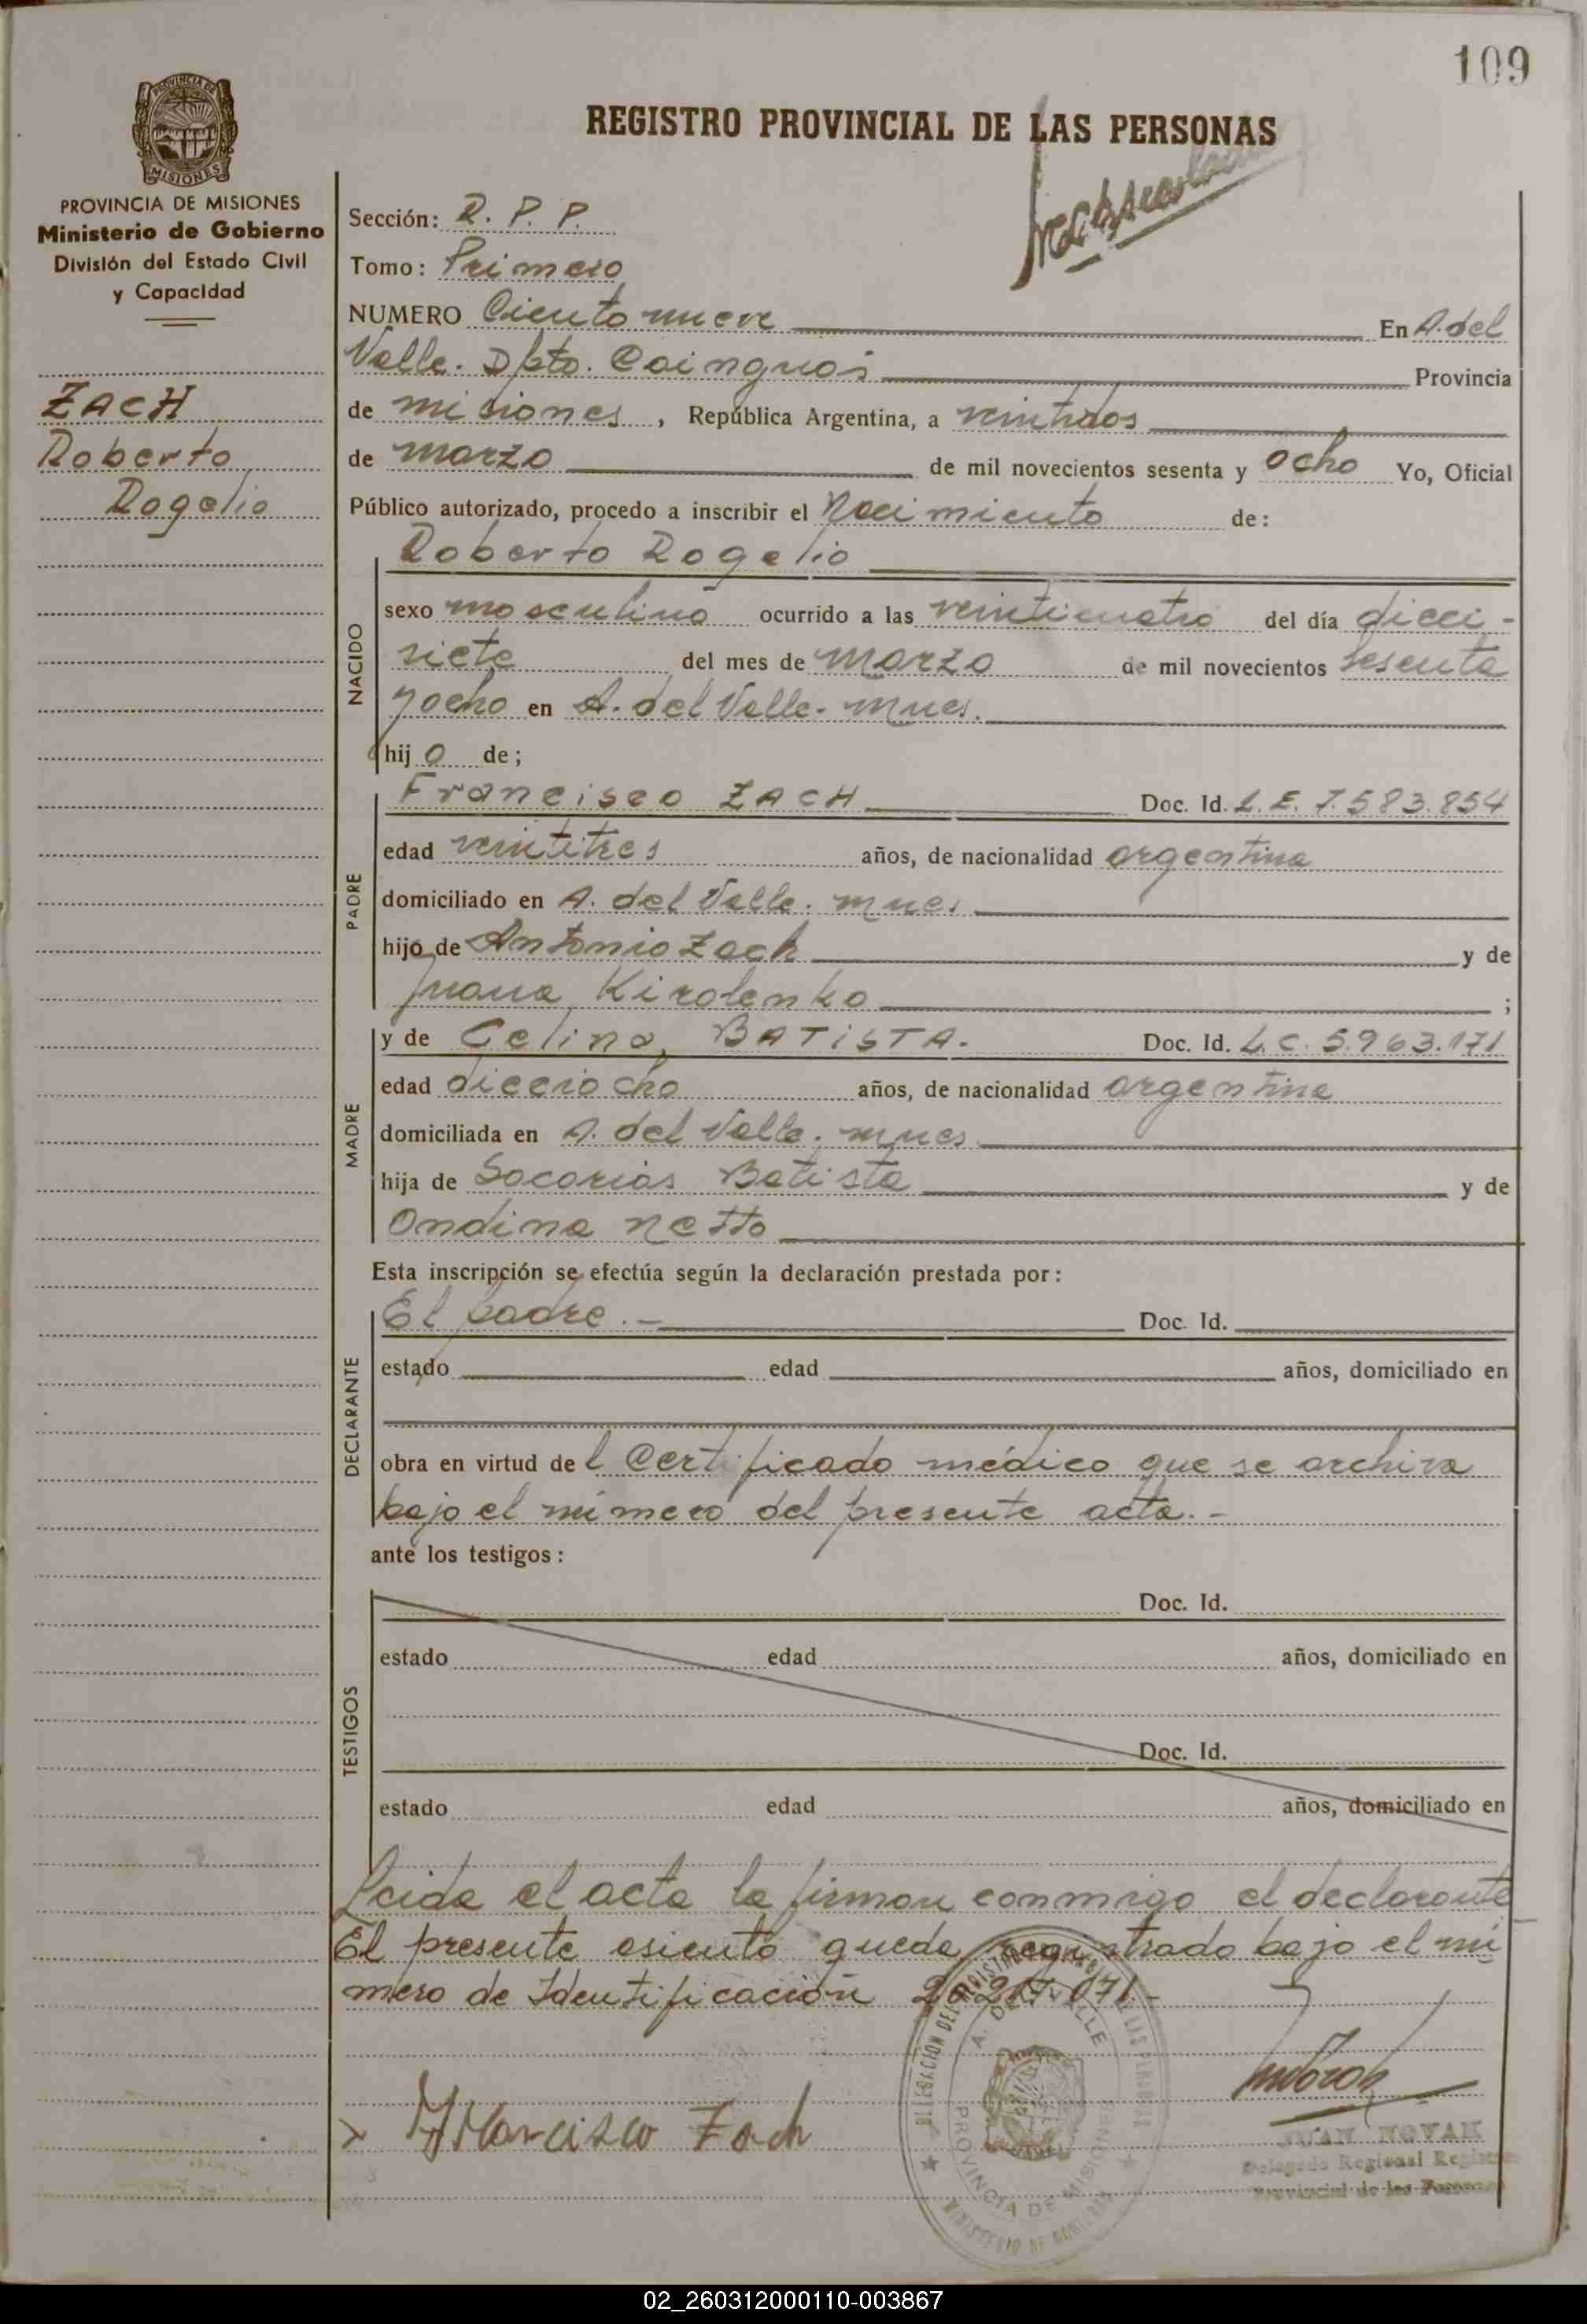 109
REGISTRO PROVINCIAL DE LAS PERSONAS
PROVINCIA DE
MISIONES
PROVINCIA DE MISIONES
Ministerio de Gobierno
División del Estado Civil
y Capacidad
ZACH
Roberto
Rogelio
Sección: R. P. P.
Tomo: Primero
NUMERO Ciento nueve En A. del
Valle. Dpto. Cainguás Provincia
de misiones, República Argentina, a veintidos
de marzo de mil novecientos sesenta y ocho Yo, Oficial
Público autorizado, procedo a inscribir el Nacimiento de:
NACIDO
Roberto Rogelio
sexo masculino ocurrido a las veinticuatro del día dieci-
siete del mes de marzo de mil novecientos sesenta
y ocho en A. del Valle. Mnes.
hijo de;
PADRE
Francisco ZACH Doc. Id. L.E. 7.583.854
edad veintitres años, de nacionalidad argentina
domiciliado en A. del Valle. mnes
hijo de Antonio Zach y de
Juana Kirolenko ;
MADRE
y de Celina BATISTA. Doc. Id. L.C. 5.963.171
edad dieciocho años, de nacionalidad argentina
domiciliada en A. del Valle. mnes
hija de Socorias Batista y de
Ondina netto
Esta inscripción se efectúa según la declaración prestada por:
DECLARANTE
El padre.- Doc. Id.
estado edad años, domiciliado en
obra en virtud del Certificado médico que se archiva
bajo el número del presente acta.-
ante los testigos:
TESTIGOS
Doc. Id.
estado edad años, domiciliado en
Doc. Id.
estado edad años, domiciliado en
Leida el acta la firman conmigo el declarante
El presente asiento queda registrado bajo el nú
mero de Identificación
DELEGACION DEL REGISTRO DE LAS PERSONAS
A. DEL VALLE
PROVINCIA DE MISIONES
MINISTERIO DE GOBIERNO
Francisco Zach
JUAN NOVAK
Delegado Regional Registro
Provincial de las Personas
02_260312000110-003867